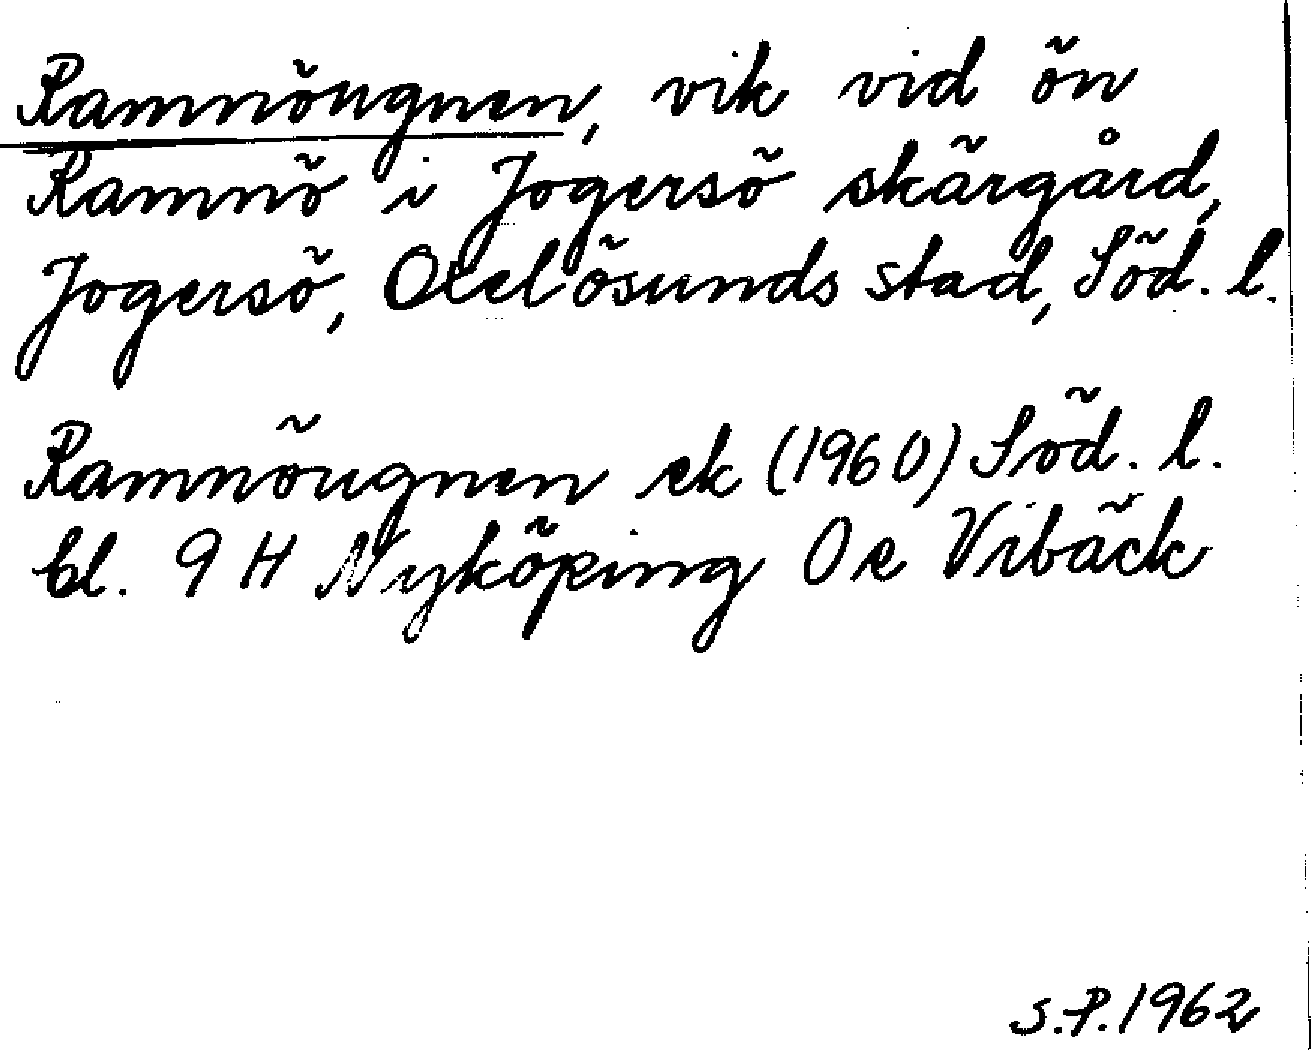 Ramnöugnen, vik vid ön
Ramnö i Jogersö skärgård,
Jogersö, Oxelösunds stad, Söd. l.
Ramnöugnen ek (1960) Söd. l.
bl. 9 H Nyköping Oe Vibäck
S.P. 1962